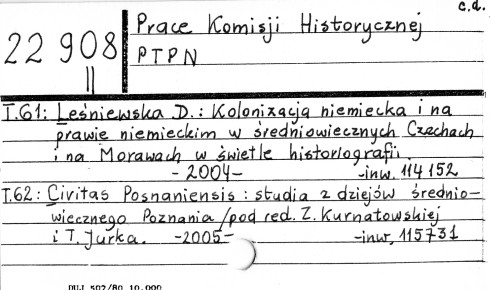 c.d.
22 908
II
Prace Komisji Historycznej
PTPN
T.61: Leśniewska D.: Kolonizacja niemiecka i na
prawie niemieckim w średniowiecznych Czechach
i na Morawach w świetle historiografii.
- 2004 -
- inw. 114 152
T.62: Civitas Posnaniensis : studia z dziejów średnio-
wiecznego Poznania / pod red. Z. Kurnatowskiej
i T. Jurka. - 2005 -
- inw. 115731
DUJ 502/80 10.000